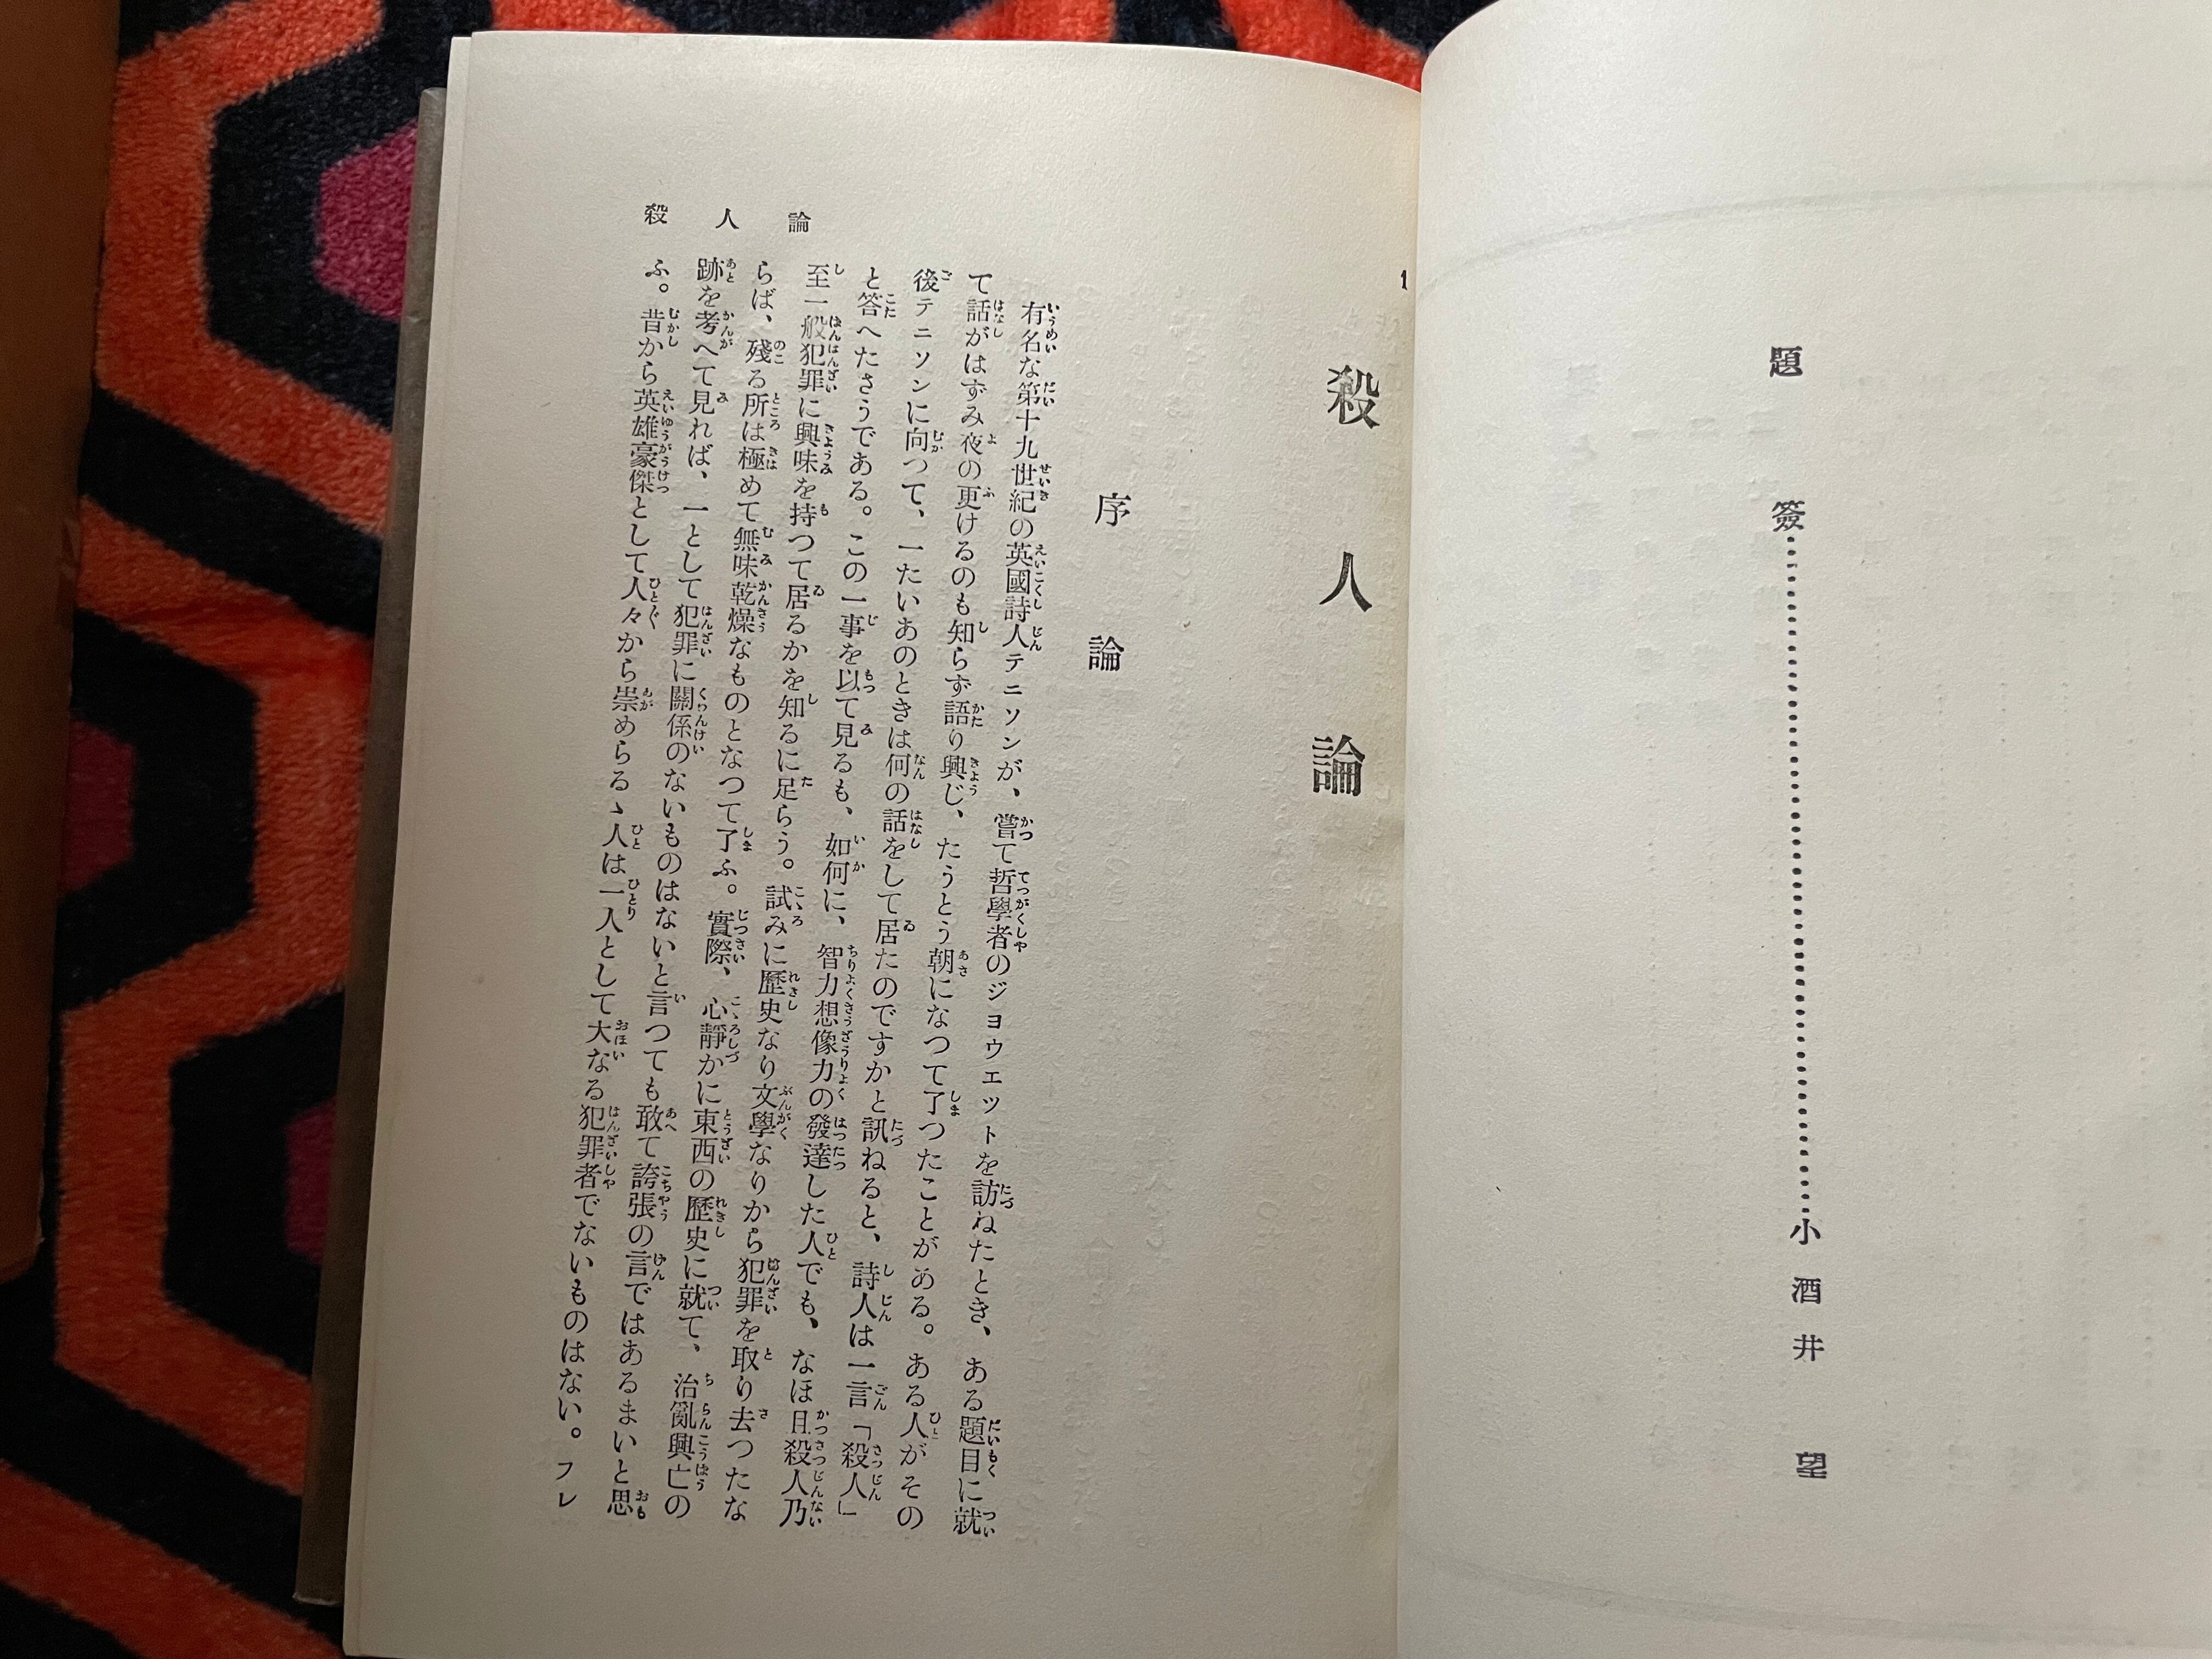 題簽……………………………小酒井望
殺人論
序論
有名な第十九世紀の英國詩人テニソンが、嘗て哲學者のジヨウエツトを訪ねたとき、ある題目に就
て話がはずみ夜の更けるのも知らず語り興じ、たうとう朝になつて了つたことがある。ある人がその
後テニソンに向つて、一たいあのときは何の話をして居たのですかと訊ねると、詩人は一言「殺人」
と答へたさうである。この一事を以て見るも、如何に、智力想像力の發達した人でも、なほ且殺人乃
至一般犯罪に興味を持つて居るかを知るに足らう。試みに歷史なり文學なりから犯罪を取り去つたな
らば、殘る所は極めて無味乾燥なものとなつて了ふ。實際、心靜かに東西の歷史に就て、治亂興亡の
跡を考へて見れば、一として犯罪に關係のないものはないと言つても敢て誇張の言ではあるまいと思
ふ。昔から英雄豪傑として人々から崇めらるゝ人は一人として大なる犯罪者でないものはない。フレ
殺人論
1